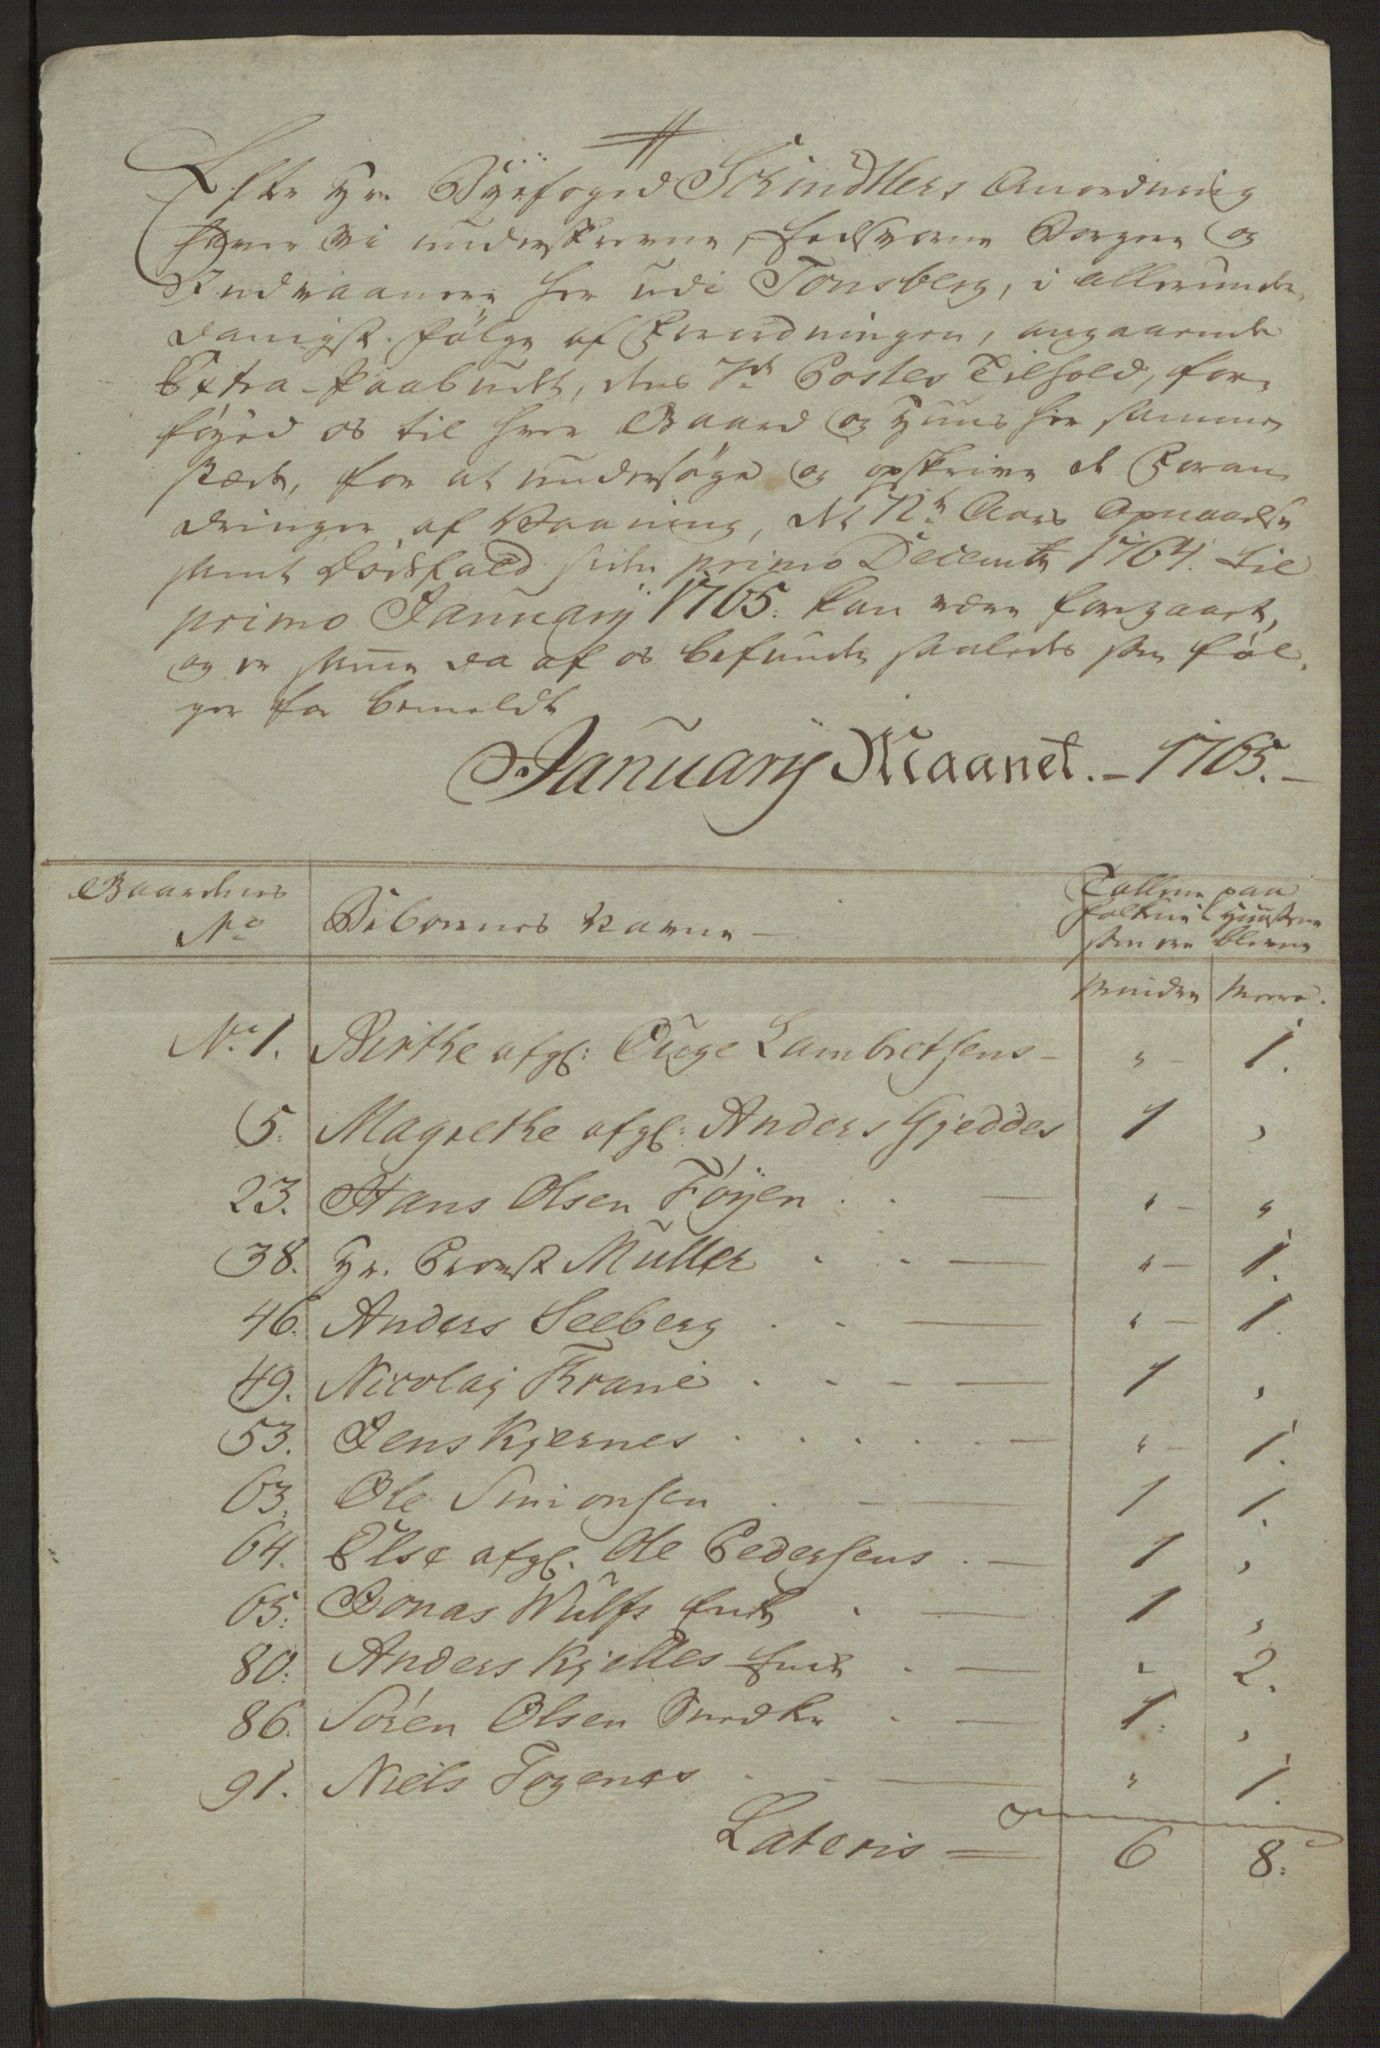 Efter Hr. Byefoged Schindtlers Anordning
haver Vi underskrevne, Eedsvorne Borgere og
Indvaanere her udi Tonsberg, i allerunder
danigst følge af Forordningen, angaaende
Extra-skaabudt, dens 7de Postes Tilhold, for-
føyed os til hver Gaard og Huus her samme
stæds, for at undersøge og opskrive de Foran
dringer af Vaaning, de 12te Aars Opnaaelse
samt dødsfald siden primo Decembr 1764. til
primo Januarij 1765. kan være foregaaet,
og er samme da af os befundet saaledes som føl
ger for bemeldte
Januarij Maanet. - 1765. -
Gaardenes No
Beboernes Navne -
Tallene paa
folkene i Huusene
som ere blevne
Mindre Meere.
No. 1. Birthe afgl: Auge Lambretsens - " - 1.
5. Magrethe afgl: Anders Gjeddes 1 "
23. Hans Olsen Føyen . . - " - "
38. Hr. Provst Muller . . - " - 1.
46. Anders Seeberg . . - " - 1.
49. Nicolaj Krane . . . - 1 "
53. Jens Kjernes . . . . . - " - 1.
63. Ole Simonsen . - 1 1.
64. Else afgl. Ole Pedersens . - 1 "
65. Jonas Wulfs Enke . - 1 "
80. Anders Kjelles Enke . - " 2.
86. Søren Olsen Smedkr . - 1. "
91. Niels Fogenes . . - " 1.
Lateris = 6 8.